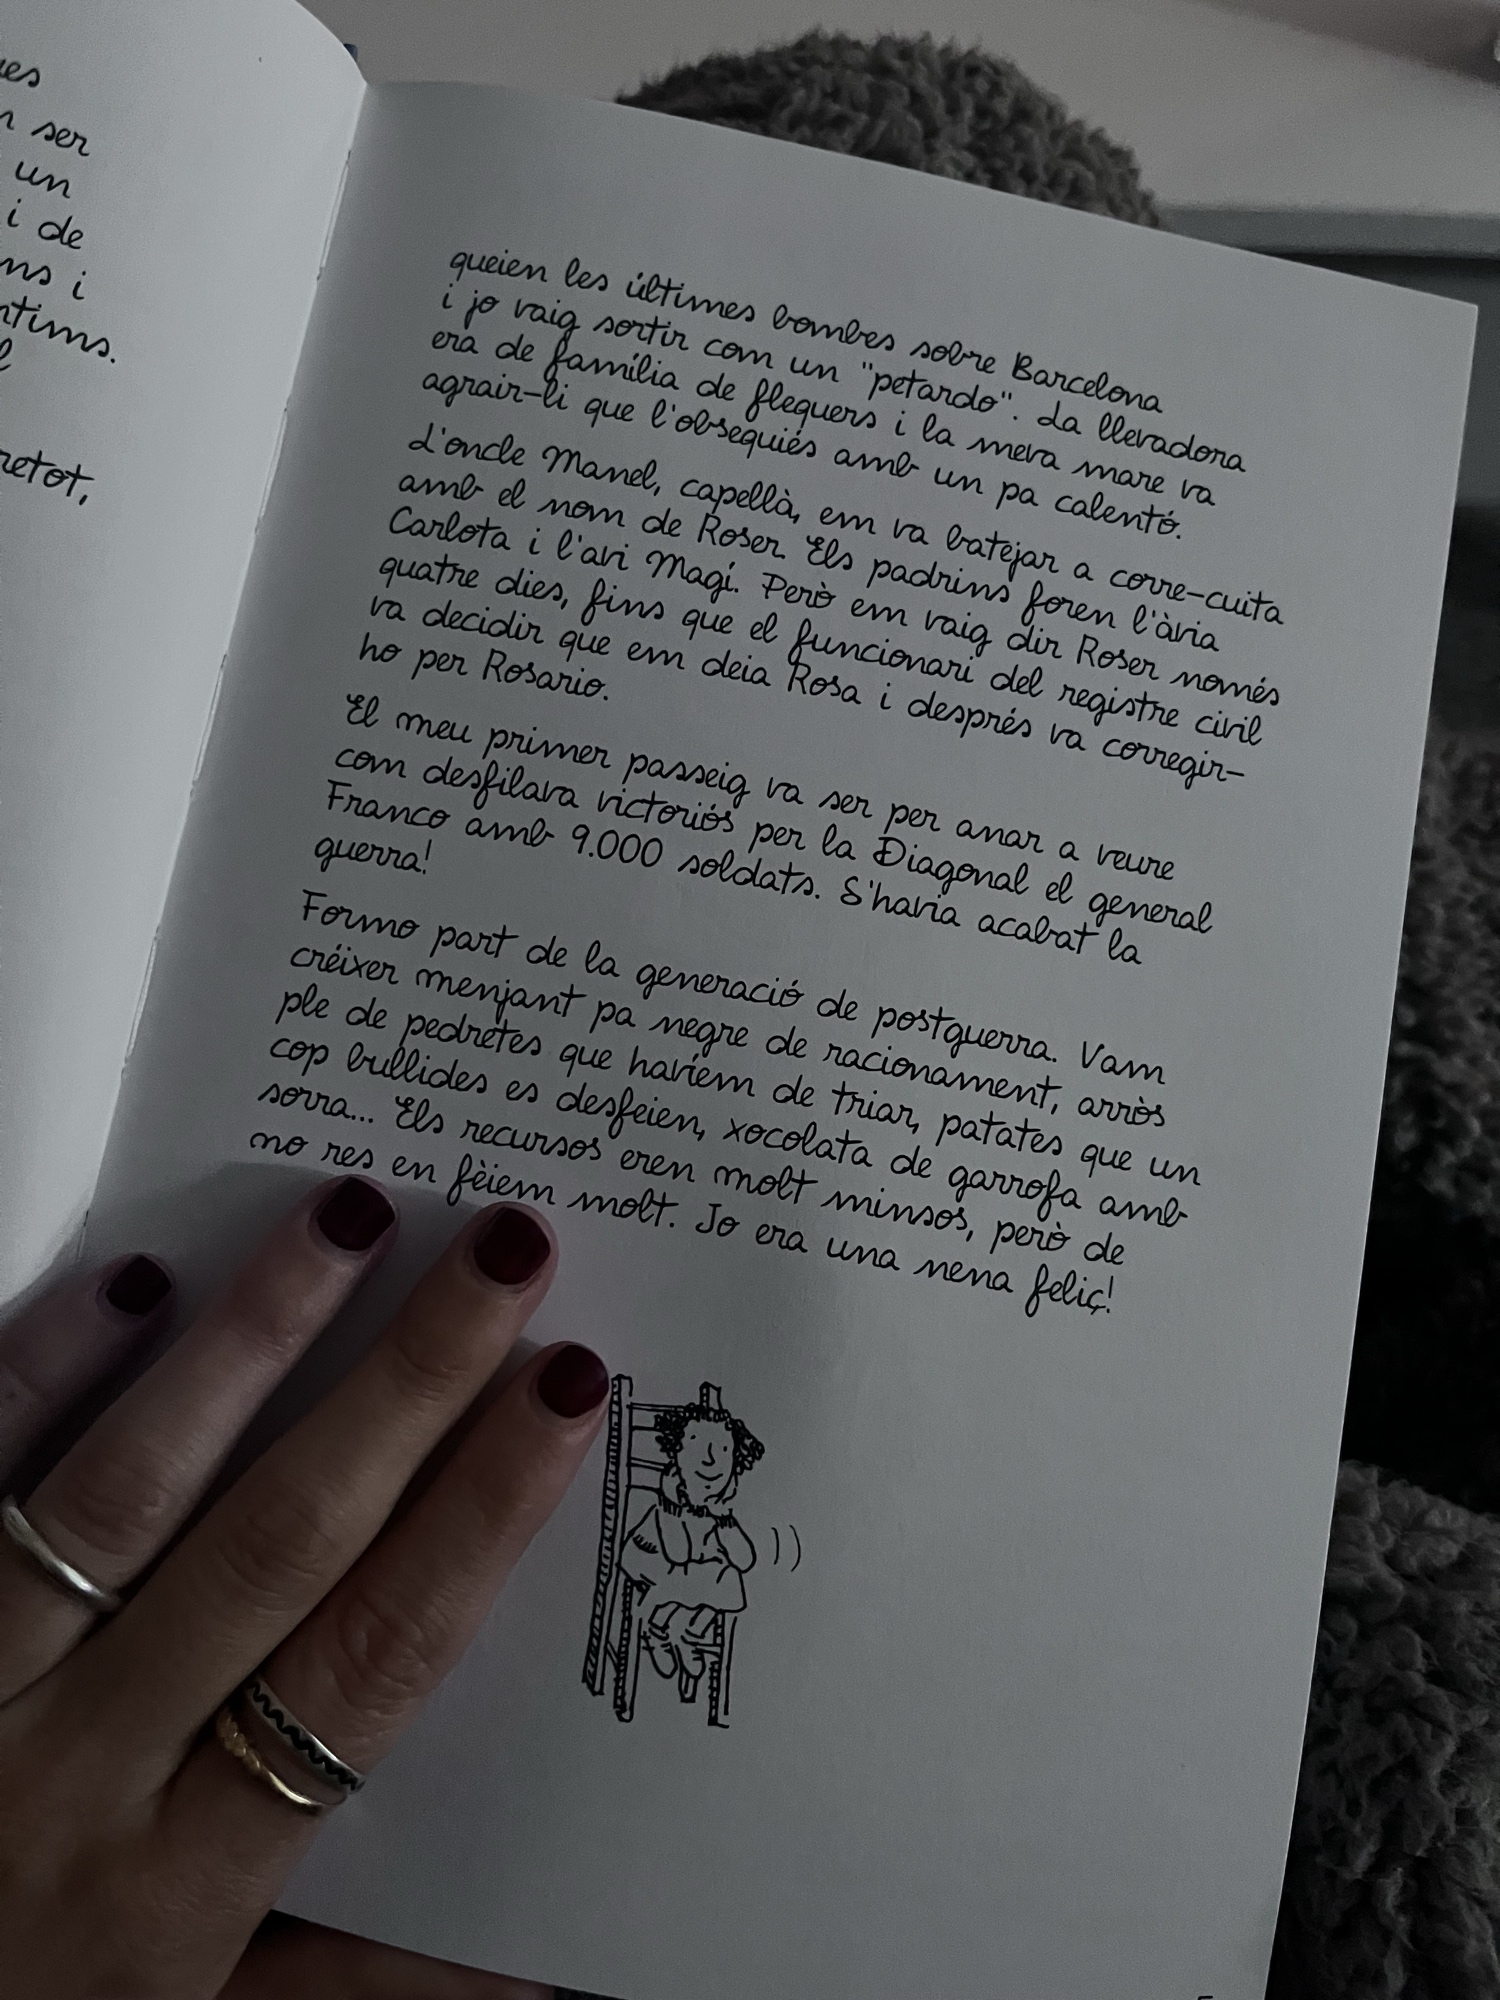 ser
un
i de
i
queien les últimes bombes sobre Barcelona
i jo vaig sortir com un "petardo". La llevadora
era de família de flequers i la meva mare va
agrair-li que l'obsequiés amb un pa calentó.
L'oncle Manel, capellà, em va batejar a corre-cuita
amb el nom de Roser. Els padrins foren l'àvia
Carlota i l'avi Magí. Però em vaig dir Roser només
quatre dies, fins que el funcionari del registre civil
va decidir que em deia Rosa i després va corregir-
ho per Rosario.
El meu primer passeig va ser per anar a veure
com desfilava victoriós per la Diagonal el general
Franco amb 9.000 soldats. S'havia acabat la
guerra!
Formo part de la generació de postguerra. Vam
créixer menjant pa negre de racionament, arròs
ple de pedretes que havíem de triar, patates que un
cop bullides es desfeien, xocolata de garrofa amb
sorra... Els recursos eren molt minsos, però de
no res en fèiem molt. Jo era una nena feliç!